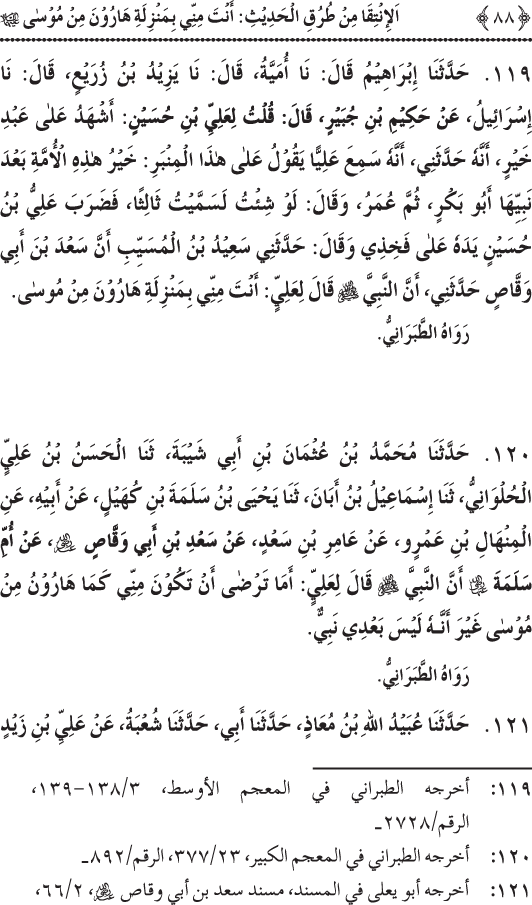 ﴿٨٨﴾ اَلإِنْتِقَا مِنْ طُرُقِ الْحَدِيْثِ: أَنْتَ مِنِّي بِمَنْزِلَةِ هَارُوْنَ مِنْ مُوْسَى عليه السلام
١١٩. حَدَّثَنَا إِبْرَاهِيْمُ قَالَ: نَا أُمَيَّةُ، قَالَ: نَا يَزِيْدُ بْنُ زُرَيْعٍ، قَالَ: نَا
إِسْرَائِيلُ، عَنْ حَكِيْمِ بْنِ جُبَيْرٍ، قَالَ: قُلْتُ لِعَلِيِّ بْنِ حُسَيْنٍ: أَشْهَدُ عَلَى عَبْدِ
خَيْرٍ، أَنَّهُ حَدَّثَنِي، أَنَّهُ سَمِعَ عَلِيًّا يَقُوْلُ عَلَى هٰذَا الْمِنْبَرِ: خَيْرُ هٰذِهِ الْأُمَّةِ بَعْدَ
نَبِيِّهَا أَبُو بَكْرٍ، ثُمَّ عُمَرُ، وَقَالَ: لَوْ شِئْتُ لَسَمَّيْتُ ثَالِثًا، فَضَرَبَ عَلِيُّ بْنُ
حُسَيْنٍ يَدَهُ عَلَى فَخِذِي وَقَالَ: حَدَّثَنِي سَعِيْدُ بْنُ الْمُسَيِّبِ أَنَّ سَعْدَ بْنَ أَبِي
وَقَّاصٍ حَدَّثَنِي، أَنَّ النَّبِيَّ ﷺ قَالَ لِعَلِيٍّ: أَنْتَ مِنِّي بِمَنْزِلَةِ هَارُوْنَ مِنْ مُوسَى.
رَوَاهُ الطَّبَرَانِيُّ.
١٢٠. حَدَّثَنَا مُحَمَّدُ بْنُ عُثْمَانَ بْنِ أَبِي شَيْبَةَ، ثَنَا الْحَسَنُ بْنُ عَلِيٍّ
الْحُلْوَانِيُّ، ثَنَا إِسْمَاعِيْلُ بْنُ أَبَانَ، ثَنَا يَحْيَى بْنُ سَلَمَةَ بْنِ كُهَيْلٍ، عَنْ أَبِيْهِ، عَنِ
الْمِنْهَالِ بْنِ عَمْرٍو، عَنْ عَامِرِ بْنِ سَعْدٍ، عَنْ سَعْدِ بْنِ أَبِي وَقَّاصٍ، عَنْ أُمِّ
سَلَمَةَ أَنَّ النَّبِيَّ ﷺ قَالَ لِعَلِيٍّ: أَمَا تَرْضَى أَنْ تَكُوْنَ مِنِّي كَمَا هَارُوْنُ مِنْ
مُوْسَى غَيْرَ أَنَّهُ لَيْسَ بَعْدِي نَبِيٌّ.
رَوَاهُ الطَّبَرَانِيُّ.
١٢١. حَدَّثَنَا عُبَيْدُ اللهِ بْنُ مُعَاذٍ، حَدَّثَنَا أَبِي، حَدَّثَنَا شُعْبَةُ، عَنْ عَلِيِّ بْنِ زَيْدٍ
١١٩: أخرجه الطبراني في المعجم الأوسط، ٣/١٣٨-١٣٩،
الرقم/٢٧٢٨ـ
١٢٠: أخرجه الطبراني في المعجم الكبير، ٢٣/٣٧٧، الرقم/٨٩٢ـ
١٢١: أخرجه أبو يعلى في المسند، مسند سعد بن أبي وقاص، ٢/٦٦،